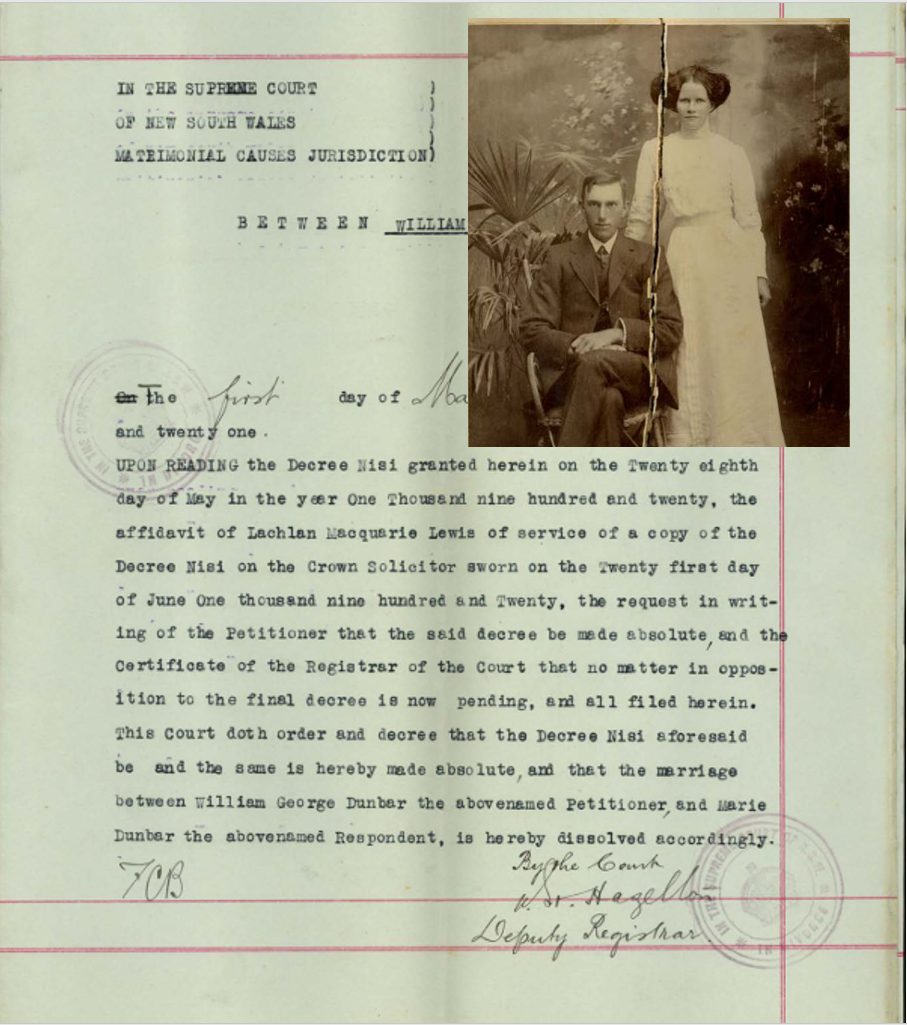 IN THE SUPREME COURT )
)
OF NEW SOUTH WALES )
)
MATRIMONIAL CAUSES JURISDICTION)
B E T W E E N WILLIAM
On The first day of Ma
and twenty one.
UPON READING the Decree Nisi granted herein on the Twenty eighth
day of May in the year One Thousand nine hundred and twenty, the
affidavit of Lachlan Macquarie Lewis of service of a copy of the
Decree Nisi on the Crown Solicitor sworn on the Twenty first day
of June One thousand nine hundred and Twenty, the request in writ-
ing of the Petitioner that the said decree be made absolute, and the
Certificate of the Registrar of the Court that no matter in oppos-
ition to the final decree is now pending, and all filed herein.
This Court doth order and decree that the Decree Nisi aforesaid
be and the same is hereby made absolute, and that the marriage
between William George Dunbar the abovenamed Petitioner, and Marie
Dunbar the abovenamed Respondent, is hereby dissolved accordingly.
FCB
By the Court
Deputy Registrar.
IN THE SUPREME COURT OF N.S.W. IN DIVORCE